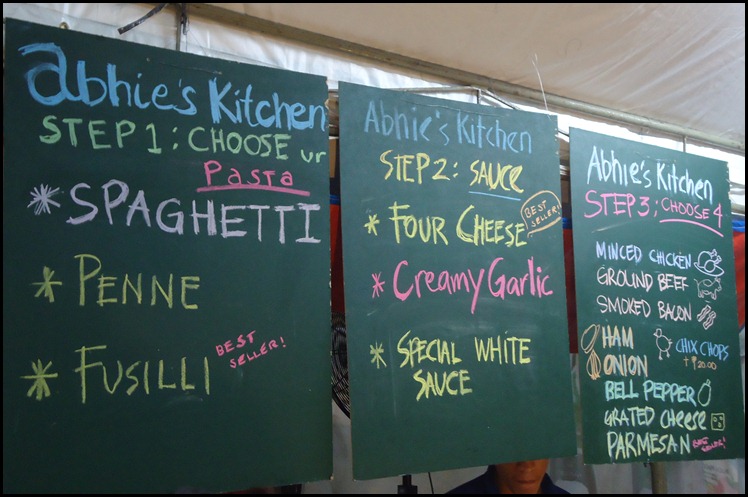 abhie's Kitchen
STEP 1: CHOOSE ur
Pasta
* SPAGHETTI
* PENNE
* FUSILLI
BEST SELLER!
Abhie's Kitchen
STEP 2: SAUCE
* FOUR CHEESE
BEST SELLER!
* Creamy Garlic
* SPECIAL WHITE
SAUCE
Abhie's Kitchen
STEP 3: CHOOSE 4
MINCED CHICKEN
GROUND BEEF
SMOKED BACON
HAM
CHIX CHOPS
ONION
+ ₱20.00
BELL PEPPER
GRATED CHEESE
PARMESAN BEST SELLER!